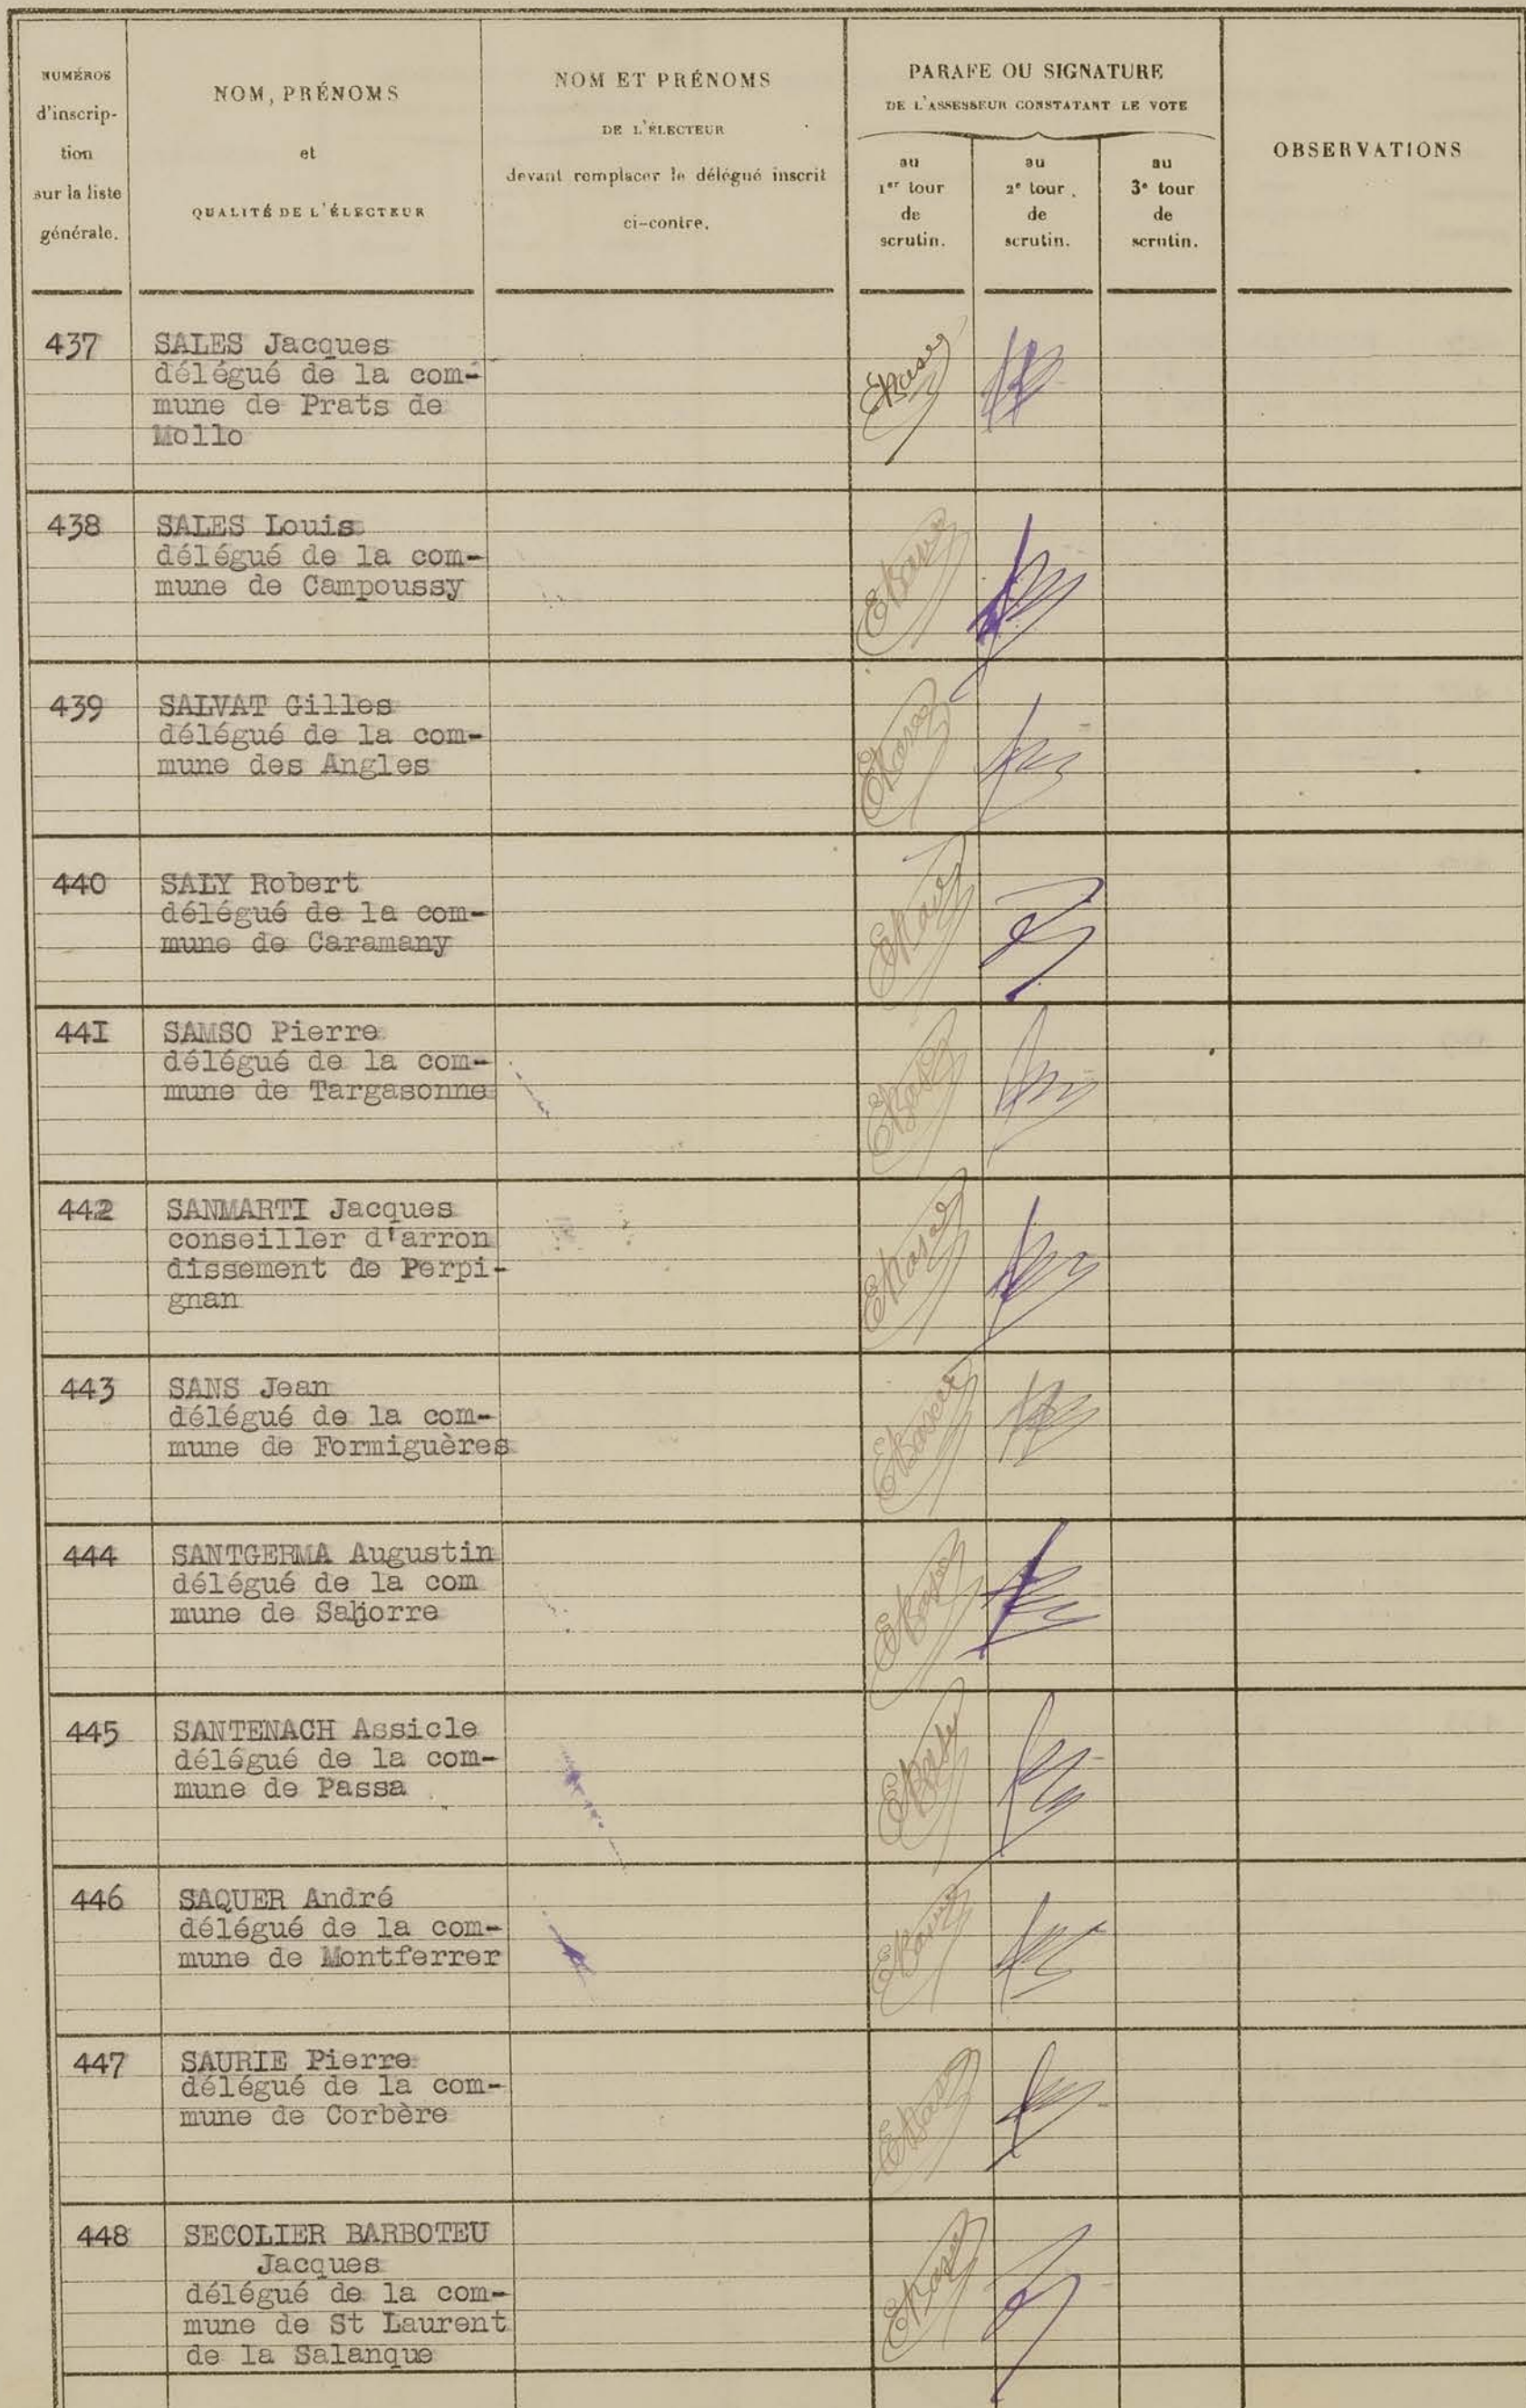 NUMÉROS
d'inscrip-
tion
sur la liste
générale.
NOM, PRÉNOMS
et
QUALITÉ DE L'ÉLECTEUR
NOM ET PRÉNOMS
DE L'ÉLECTEUR
devant remplacer le délégué inscrit
ci-contre.
PARAFE OU SIGNATURE
DE L'ASSESSEUR CONSTATANT LE VOTE
au
1er tour
de
scrutin.
au
2e tour.
de
scrutin.
au
3e tour
de
scrutin.
OBSERVATIONS
437 SALES Jacques
délégué de la com-
mune de Prats de
Mollo
438 SALES Louis
délégué de la com-
mune de Campoussy
439 SALVAT Gilles
délégué de la com-
mune des Angles
440 SALY Robert
délégué de la com-
mune de Caramany
44I SAMSO Pierre
délégué de la com-
mune de Targasonne
442 SANMARTI Jacques
conseiller d'arron
dissement de Perpi-
gnan
443 SANS Jean
délégué de la com-
mune de Formiguères
444 SANTGERMA Augustin
délégué de la com
mune de Sahorre
445 SANTENACH Assicle
délégué de la com-
mune de Passa
446 SAQUER André
délégué de la com-
mune de Montferrer
447 SAURIE Pierre
délégué de la com-
mune de Corbère
448 SECOLIER BARBOTEU
Jacques
délégué de la com-
mune de St Laurent
de la Salanque